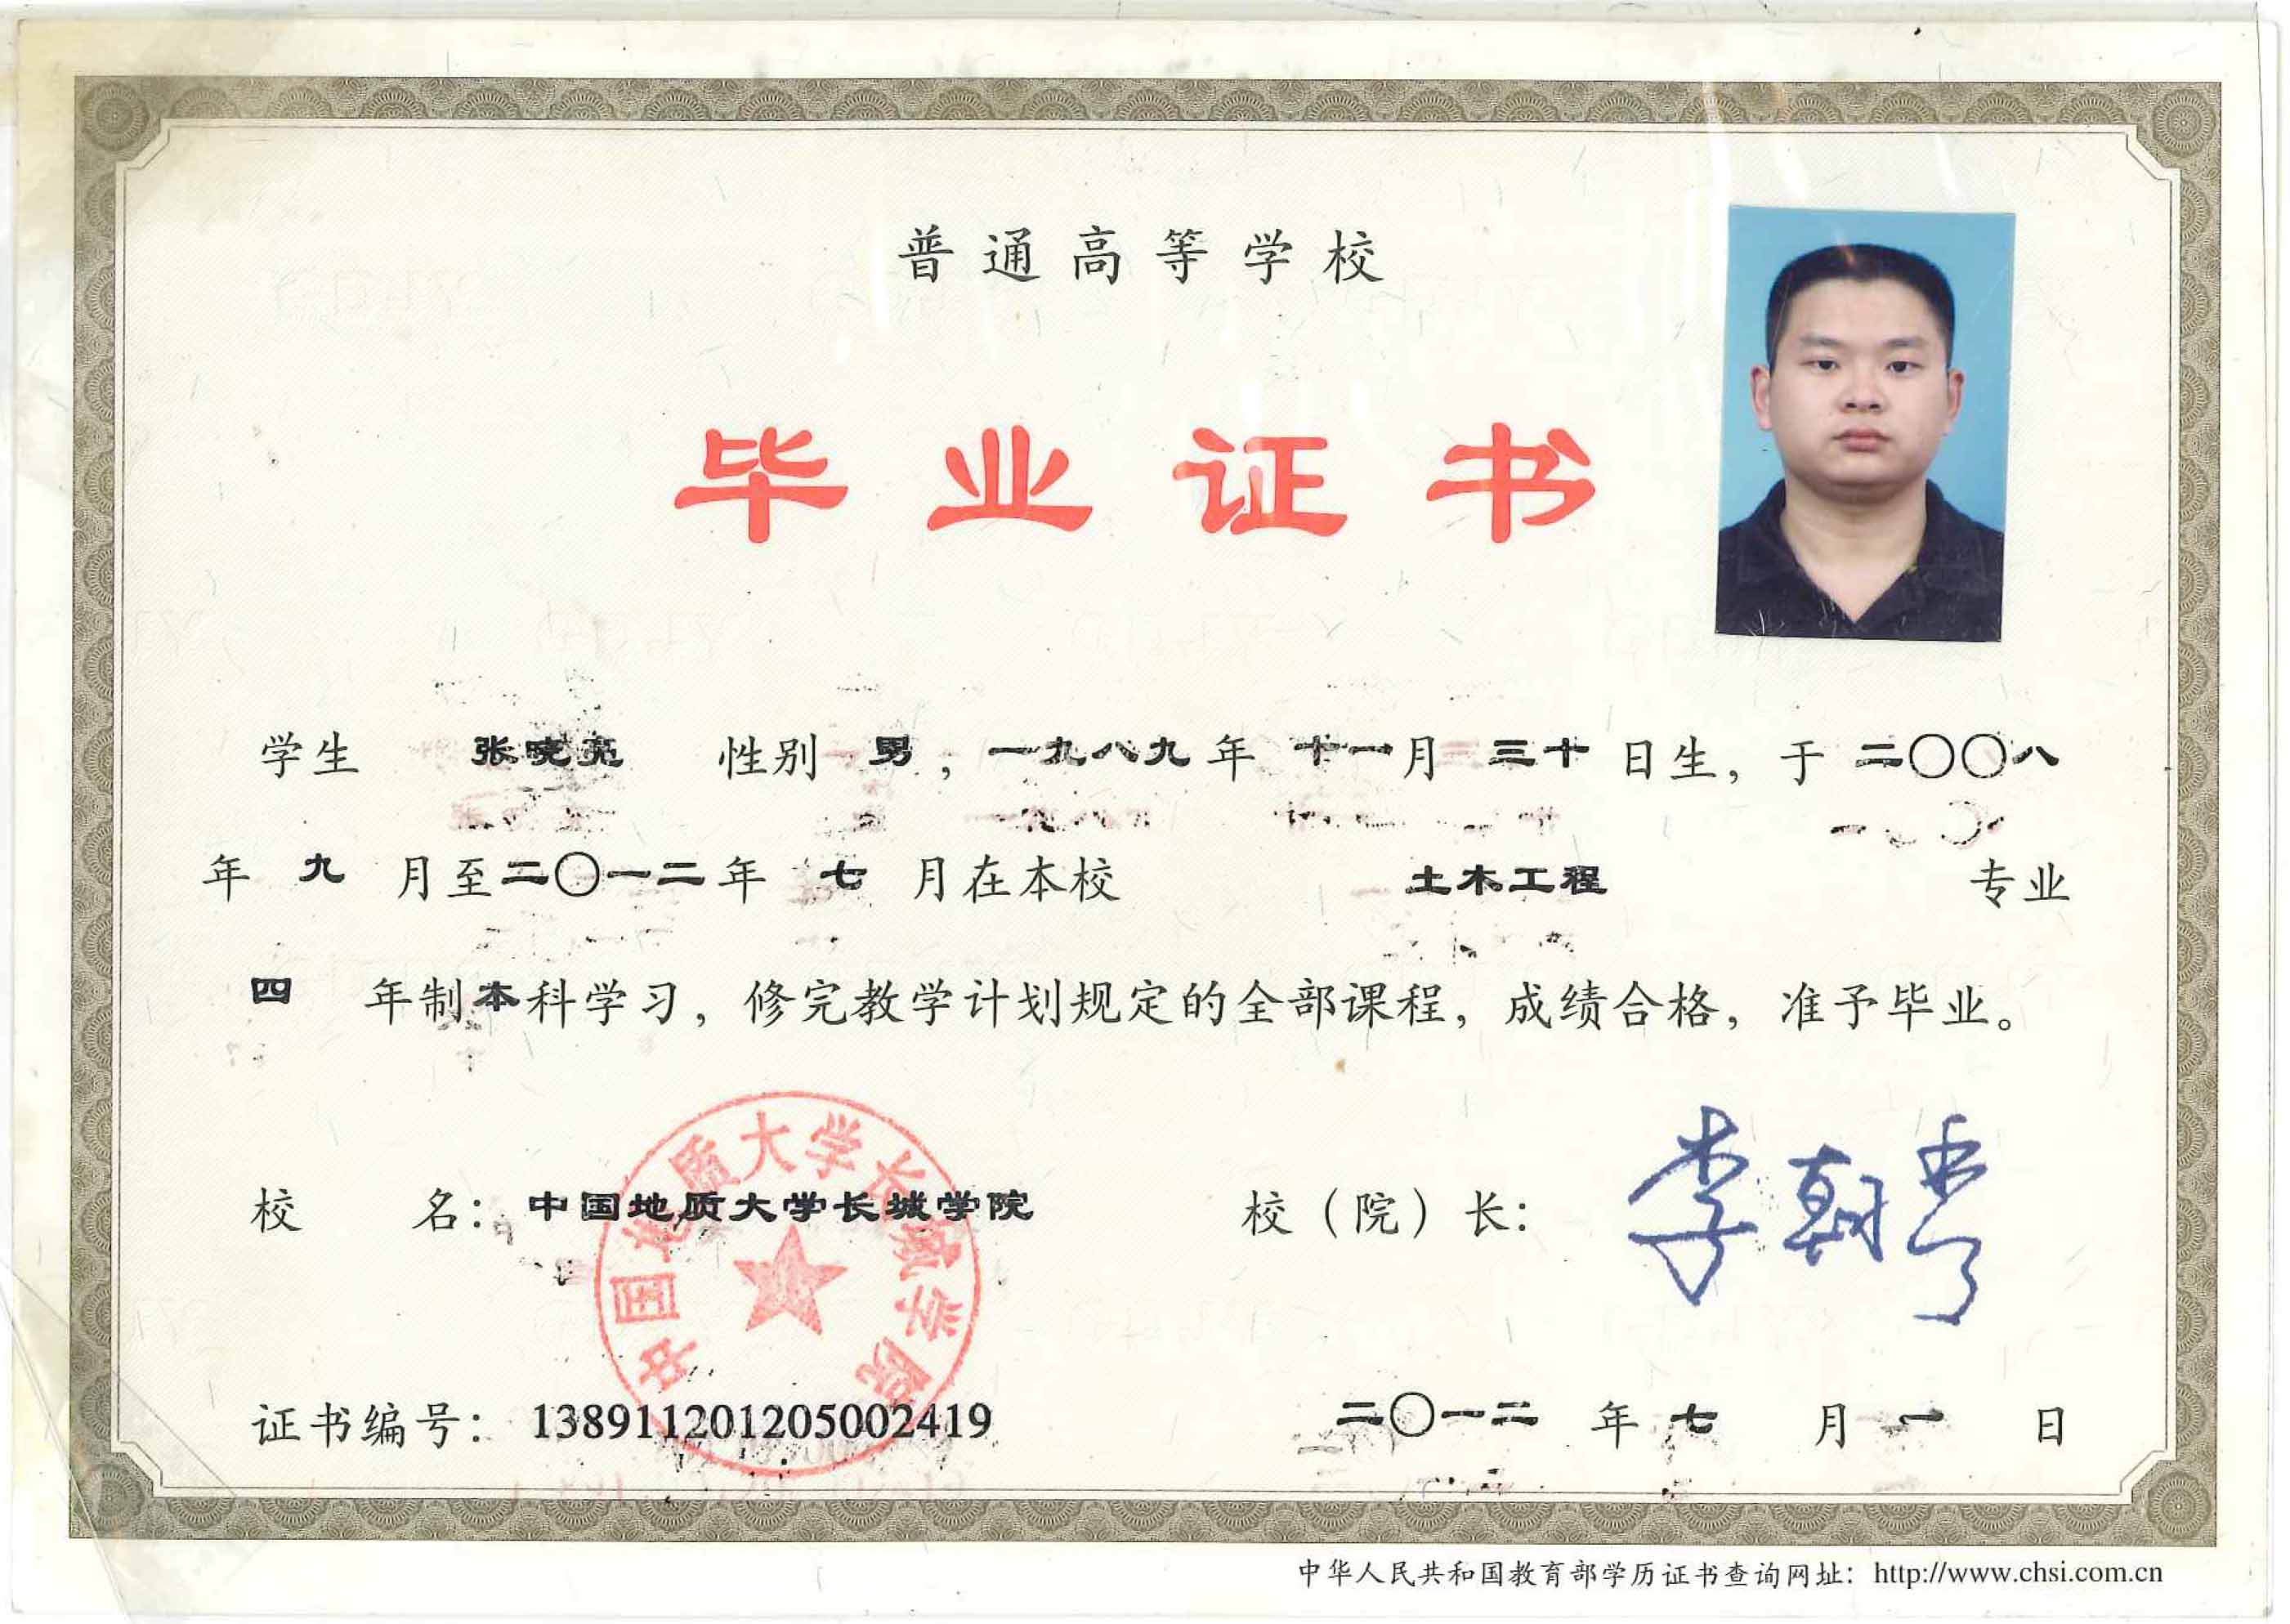 普通高等学校
毕业证书
学生 张晓亮 性别 男，一九八九年 十一月 三十 日生，于 二〇〇八
年 九 月至二〇一二年 七 月在本校 土木工程 专业
四 年制本科学习，修完教学计划规定的全部课程，成绩合格，准予毕业。
中国地质大学长城学院
校 名：中国地质大学长城学院 校（院）长：
证书编号：138911201205002419 二〇一二 年 七 月 一 日
中华人民共和国教育部学历证书查询网址：http://www.chsi.com.cn